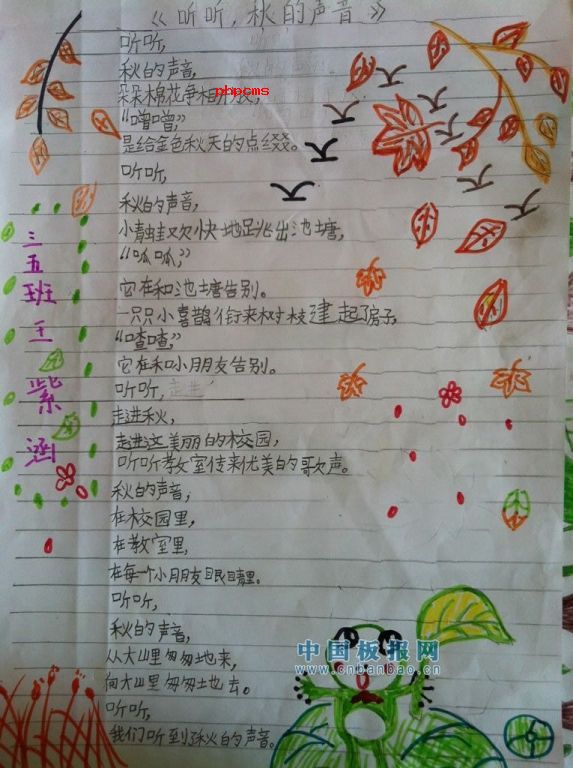 《听听,秋的声音》
听听,
秋的声音,
朵朵棉花争相
phpcms
“噌噌,”
是给金色秋天的点缀。
听听,
秋的声音,
小青蛙欢快地跳出池塘,
“呱呱,”
它在和池塘告别。
一只只小喜鹊衔来树枝建起了房子,
“喳喳,”
它在和小朋友告别。
听听,走进
走进秋,
走进这美丽的校园,
听听教室传来优美的歌声。
秋的声音,
在校园里,
在教室里,
在每一个小朋友眼睛里。
听听,
秋的声音,
从大山里匆匆地来,
向大山里匆匆地去。
听听,
我们听到了秋的声音。
三五班王紫涵
中国板报网
www.cnbanbao.cn